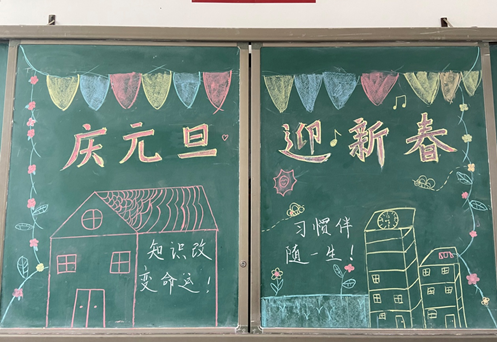 庆元旦
迎新春
知识改
变命运!
习惯伴
随一生!